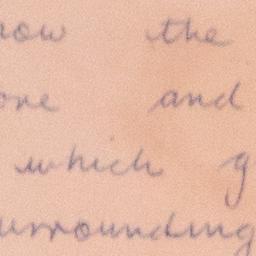 now the
one and
which g
urrounding